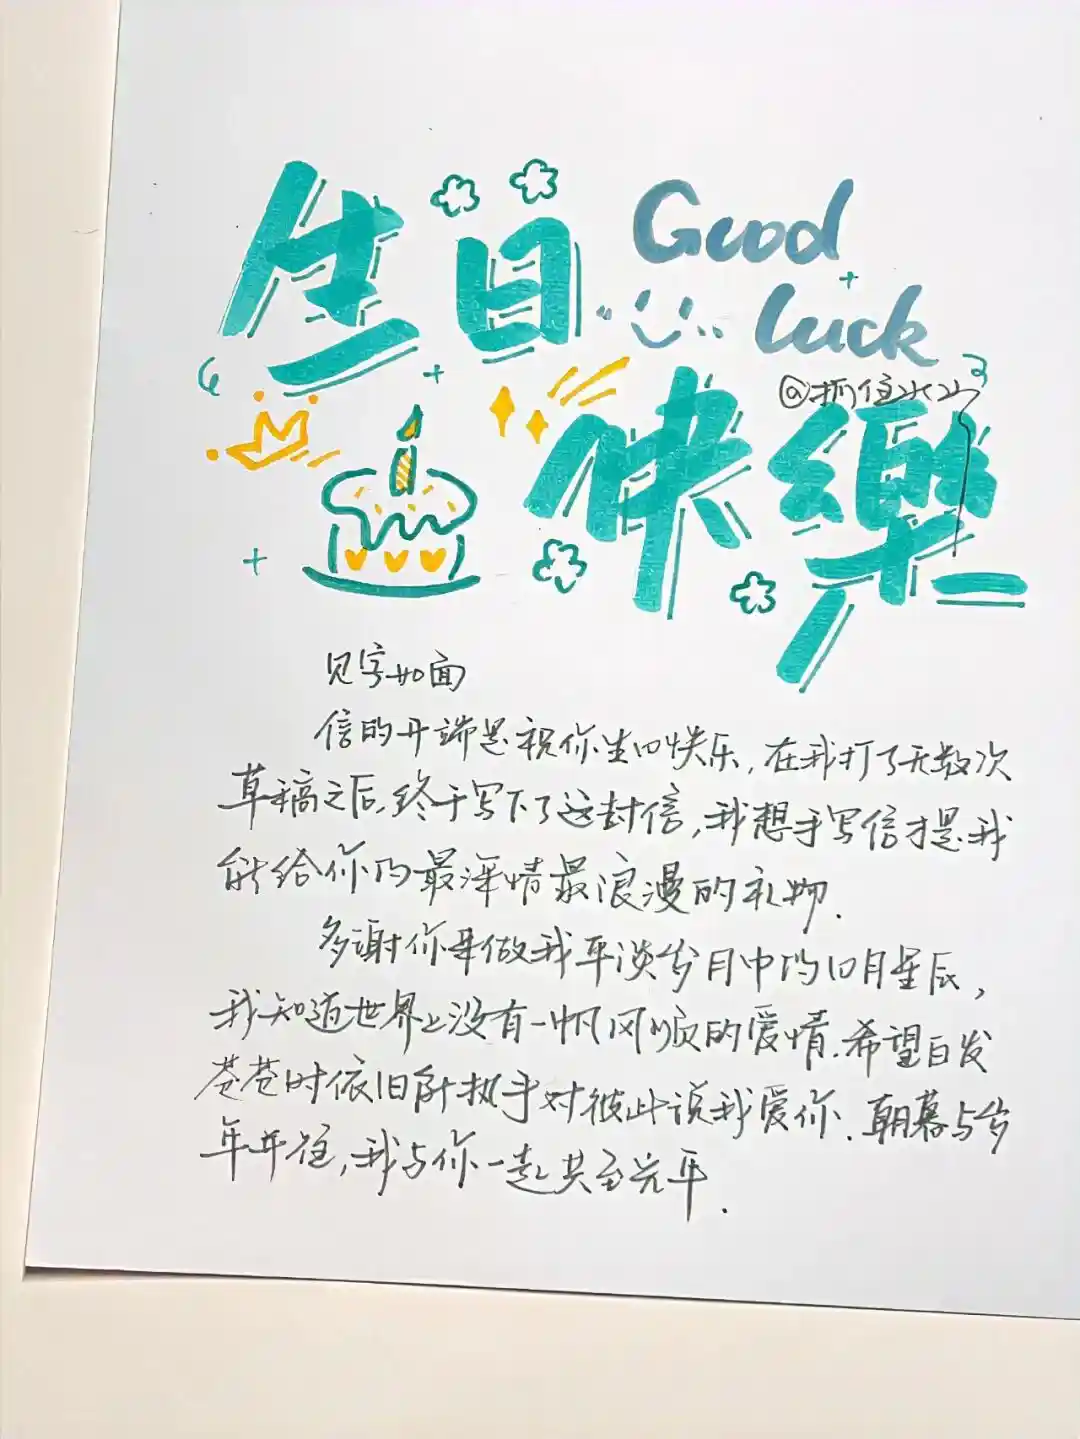 生日
Good
luck
@抓住水山
快樂
见字如面
信的开端是祝你生日快乐,在我打了无数次
草稿之后,终于写下了这封信,我想手写信才是我
能给你的最深情最浪漫的礼物.
多谢你来做我平淡岁月中的日月星辰,
我知道世界上没有一帆风顺的爱情.希望白发
苍苍时依旧能执手对彼此说我爱你.朝暮与岁
年并往,我与你一起共至光年.